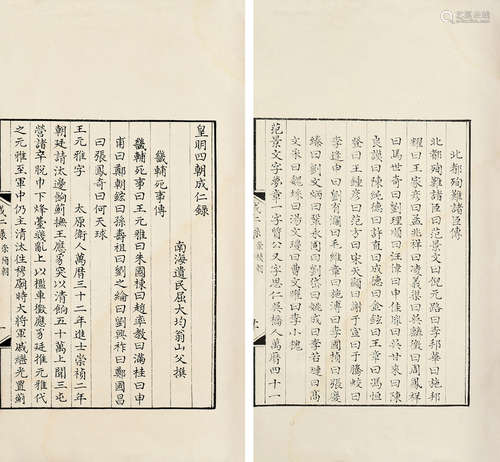 北都殉難諸臣傳
北都殉難諸臣曰范景文曰倪元路曰李邦華曰施邦
曜曰王家彥曰孟兆祥曰凌義渠曰吳麟徵曰周鳳祥
曰馬世奇曰劉理順曰汪偉曰申佳胤曰吳甘來曰陳
良謨曰陳純德曰許直曰成德曰金鉉曰王章曰馮恒
登曰王鍾彥曰范方曰宋天顯曰謝于宣曰于騰蛟曰
李逢申曰劉有瀾曰毛維章曰施溥曰李國楨曰張慶
臻曰劉文炳曰張永固曰劉岱曰姚成曰李若璉曰高
文采曰魏琢曰湯文瓊曰曹文耀曰李小槐
范景文字夢章一字質公又字思仁吳橋人萬曆四十一
皇明四朝成仁錄
南海遺民屈大均翁山父撰
畿輔死事傳
畿輔死事曰王元雅曰朱國棟曰趙率教曰滿桂曰申
甫曰鄭朝鋐曰孫壽祖曰劉之綸曰劉興祚曰鄭國昌
曰張鳳奇曰何天球
王元雅字 太原衛人萬曆三十二年進士崇禎二年
朝廷請汰邊餉薊撫王應豸突以清餉五十萬上聞三屯
營諸卒脫巾下烽臺為亂上以檻車徵應豸廷推元雅代
之元雅至軍中仍主清汰往穆廟時大將軍戚繼光置薊
崇禎朝